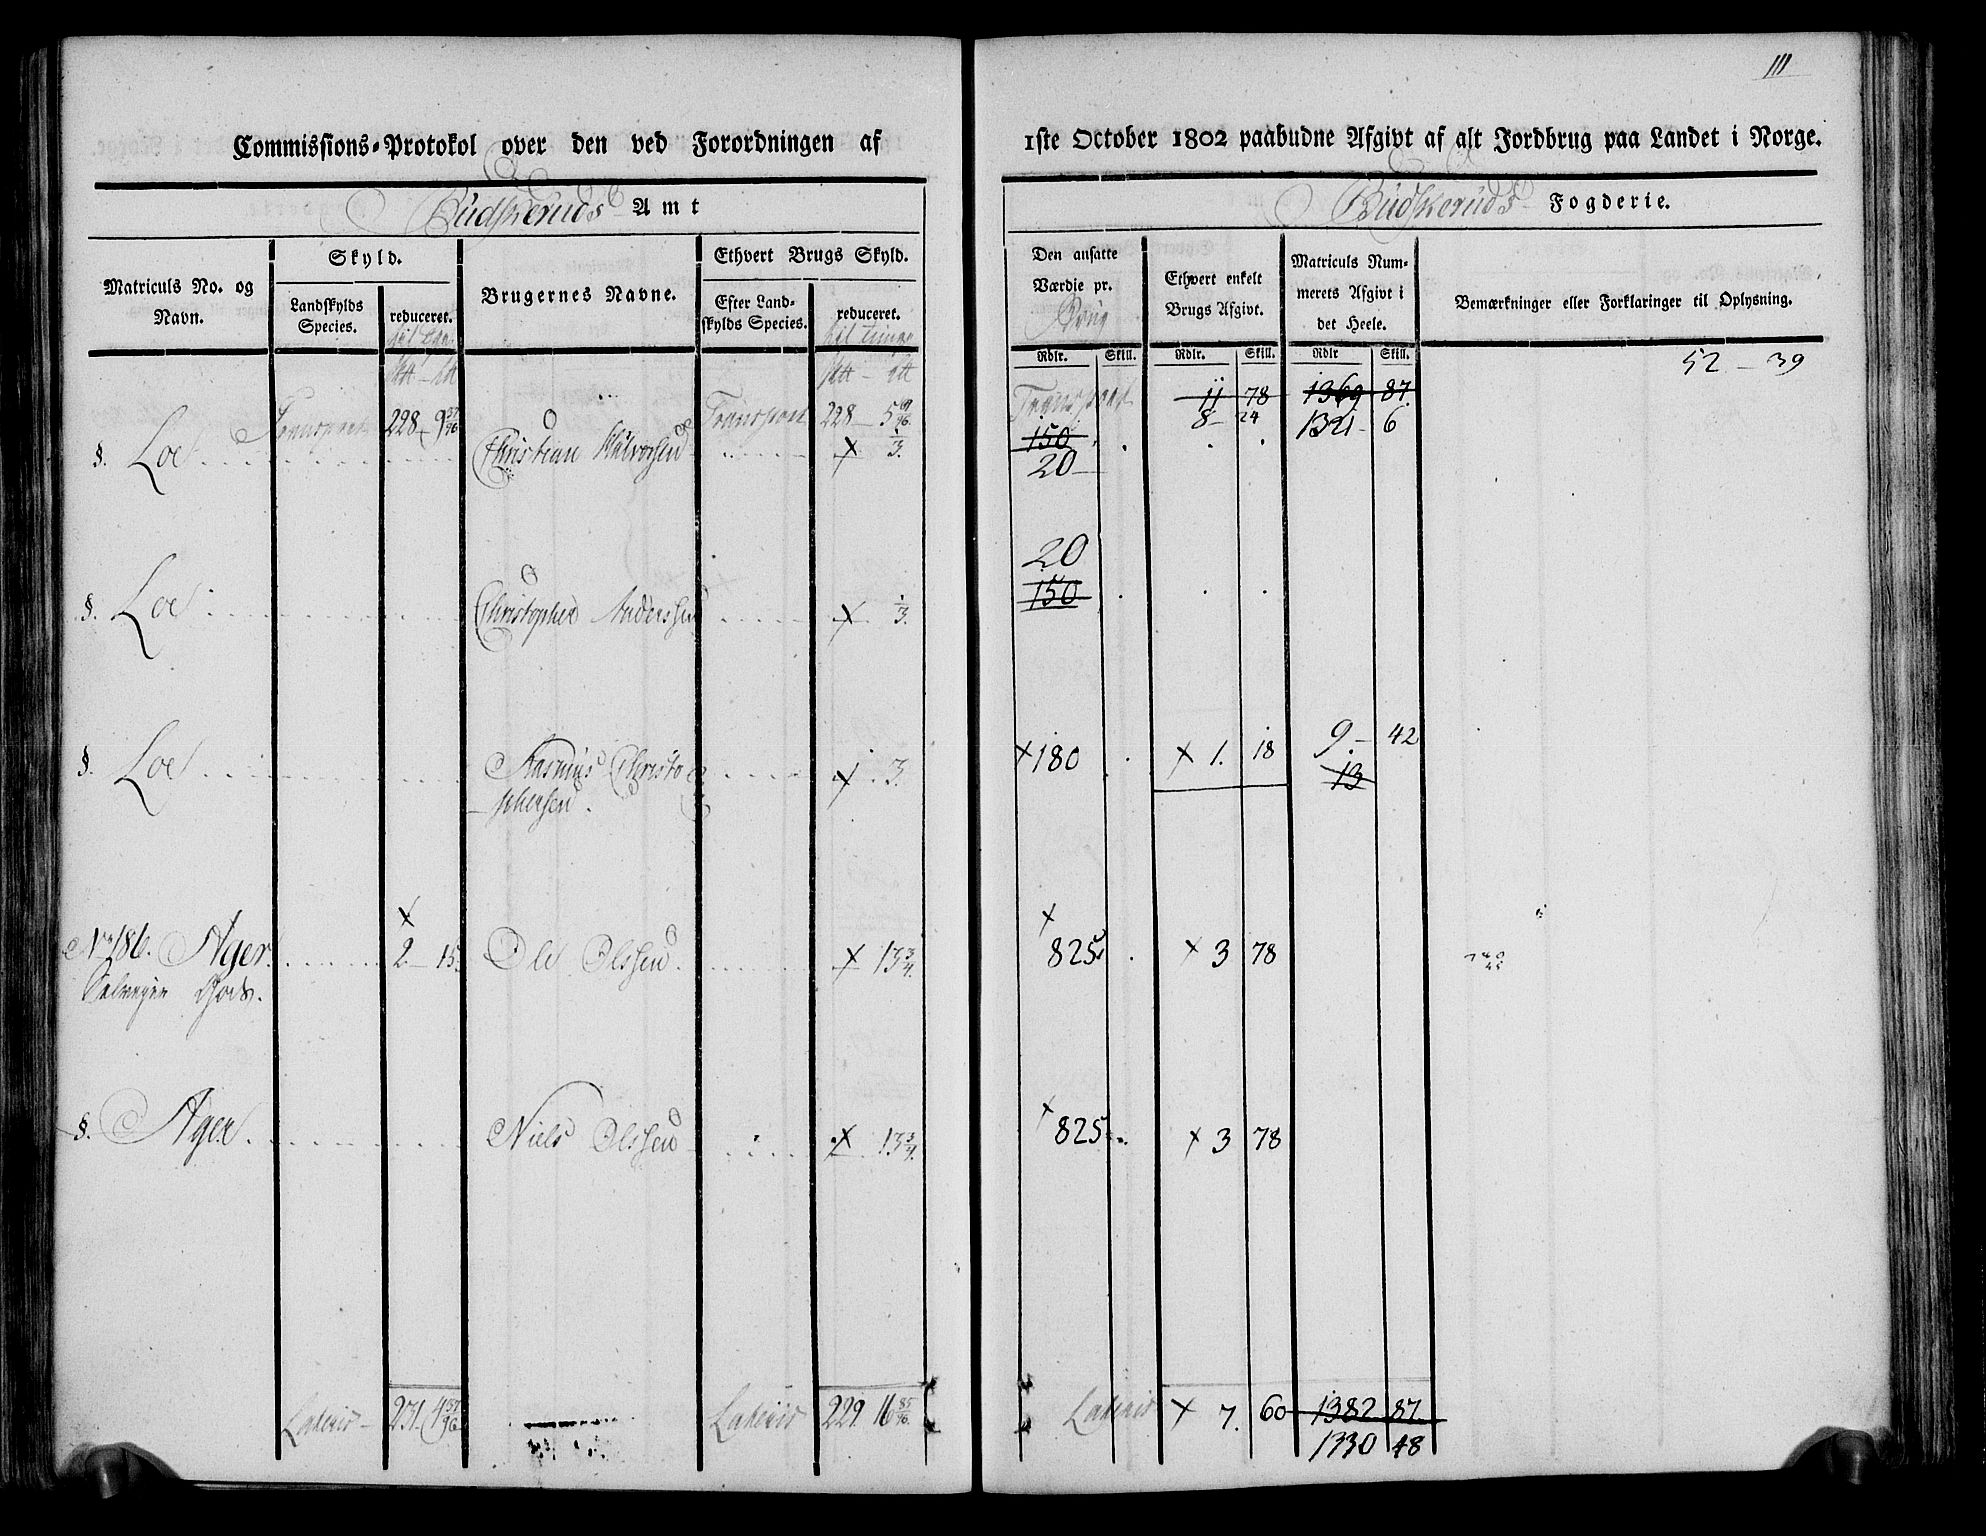 111
Commissions-Protokol over den ved Forordningen af
1ste October 1802 paabudne Afgivt af alt Jordbrug paa Landet i Norge.
Budskeruds Amt
Budskeruds Fogderie.
Matriculs No. og Navn.
Skyld.
Landskylds Species.
reduceret.
Brugernes Navne.
Ethvert Brugs Skyld.
Efter Landskylds Species.
reduceret.
Den ansatte Værdie pr. Brug
Ethvert enkelt Brugs Afgivt.
Matriculs Nummerets Afgivt i det Heele.
Bemærkninger eller Forklaringer til Oplysning.
Rdlr. Skill. Rdlr. Skill. Rdlr Skill.
52 - 39
Transport 228 - 9 37/96 Transport 228 - 5 Transport 11 78 1369 87
8 - 24 1321 - 6
§. Loe Christian Halvorsen x 1/3. 150
20
20
§. Loe Christopher Anderssen x 1/3. 150
§. Loe Rasmus Christophersen x . 3. x 180 x 1. 18 9. - 42
13
No 186. Ager 2 - 15. Ole Olssen x 13 3/4. x 825 x 3 78
Selveyer Gods.
§. Ager Niels Olssen x 13 3/4. x 825 x 3 78
Lateris 231. 4 37/96 Lateris 229. 16 85/96. Lateris x 7. 60 1382 87.
1330 48